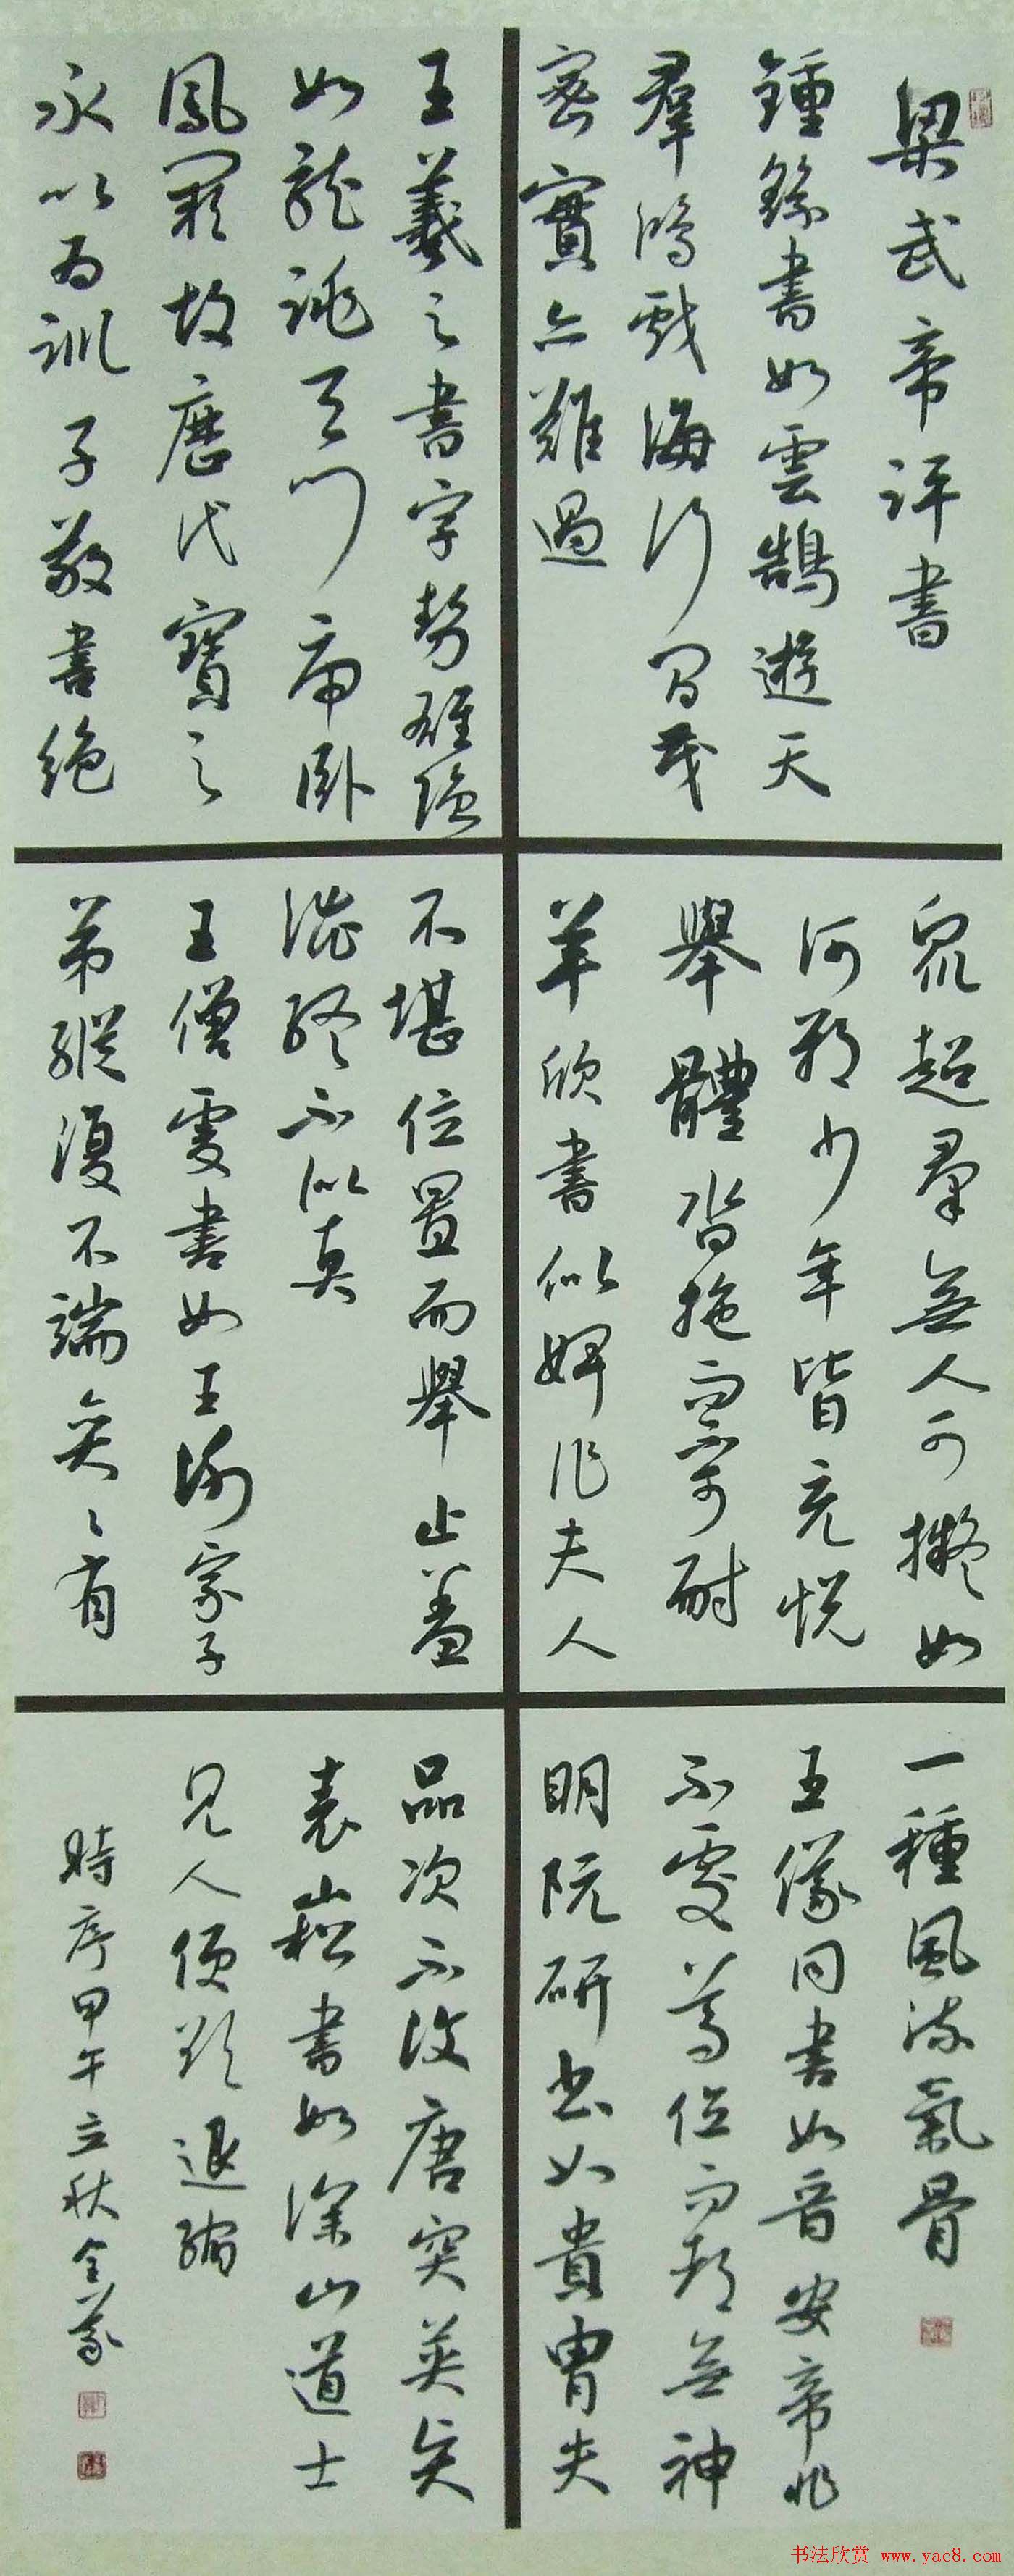 梁武帝评書
鍾繇書如雲鵠遊天
羣鴻戯海行間茂
密實亦難過
王羲之書字勢雄強
如龍跳天門虎卧
鳳闕故歷代寶之
永以為訓子敬書絶
眾超羣無人可擬如
河朔少年皆充悦
舉體沓拖而不可耐
羊欣書似婢作夫人
不堪位置而舉止羞
澁終不似真
王僧虔書如王謝家子
弟縱復不端奕〻有
一種風流氣骨
王儀同書如晋安帝非
不處尊位而都無神
明阮研書如貴胄失
品次不復唐突英
袁崧書如深山道士
見人便欲退縮
時序甲午立秋
书法欣赏 www.yac8.com